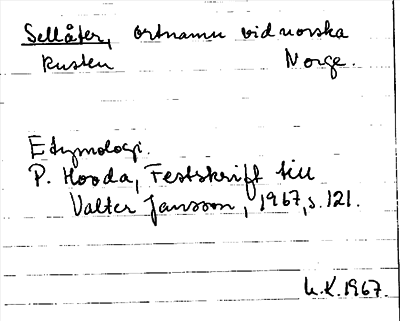 Sellåter, ortnamn vid norska
kusten Norge.
Etymologi.
P. Hovda, Festskrift till
Valter Jansson, 1967, s. 121.
h.K. 1967.